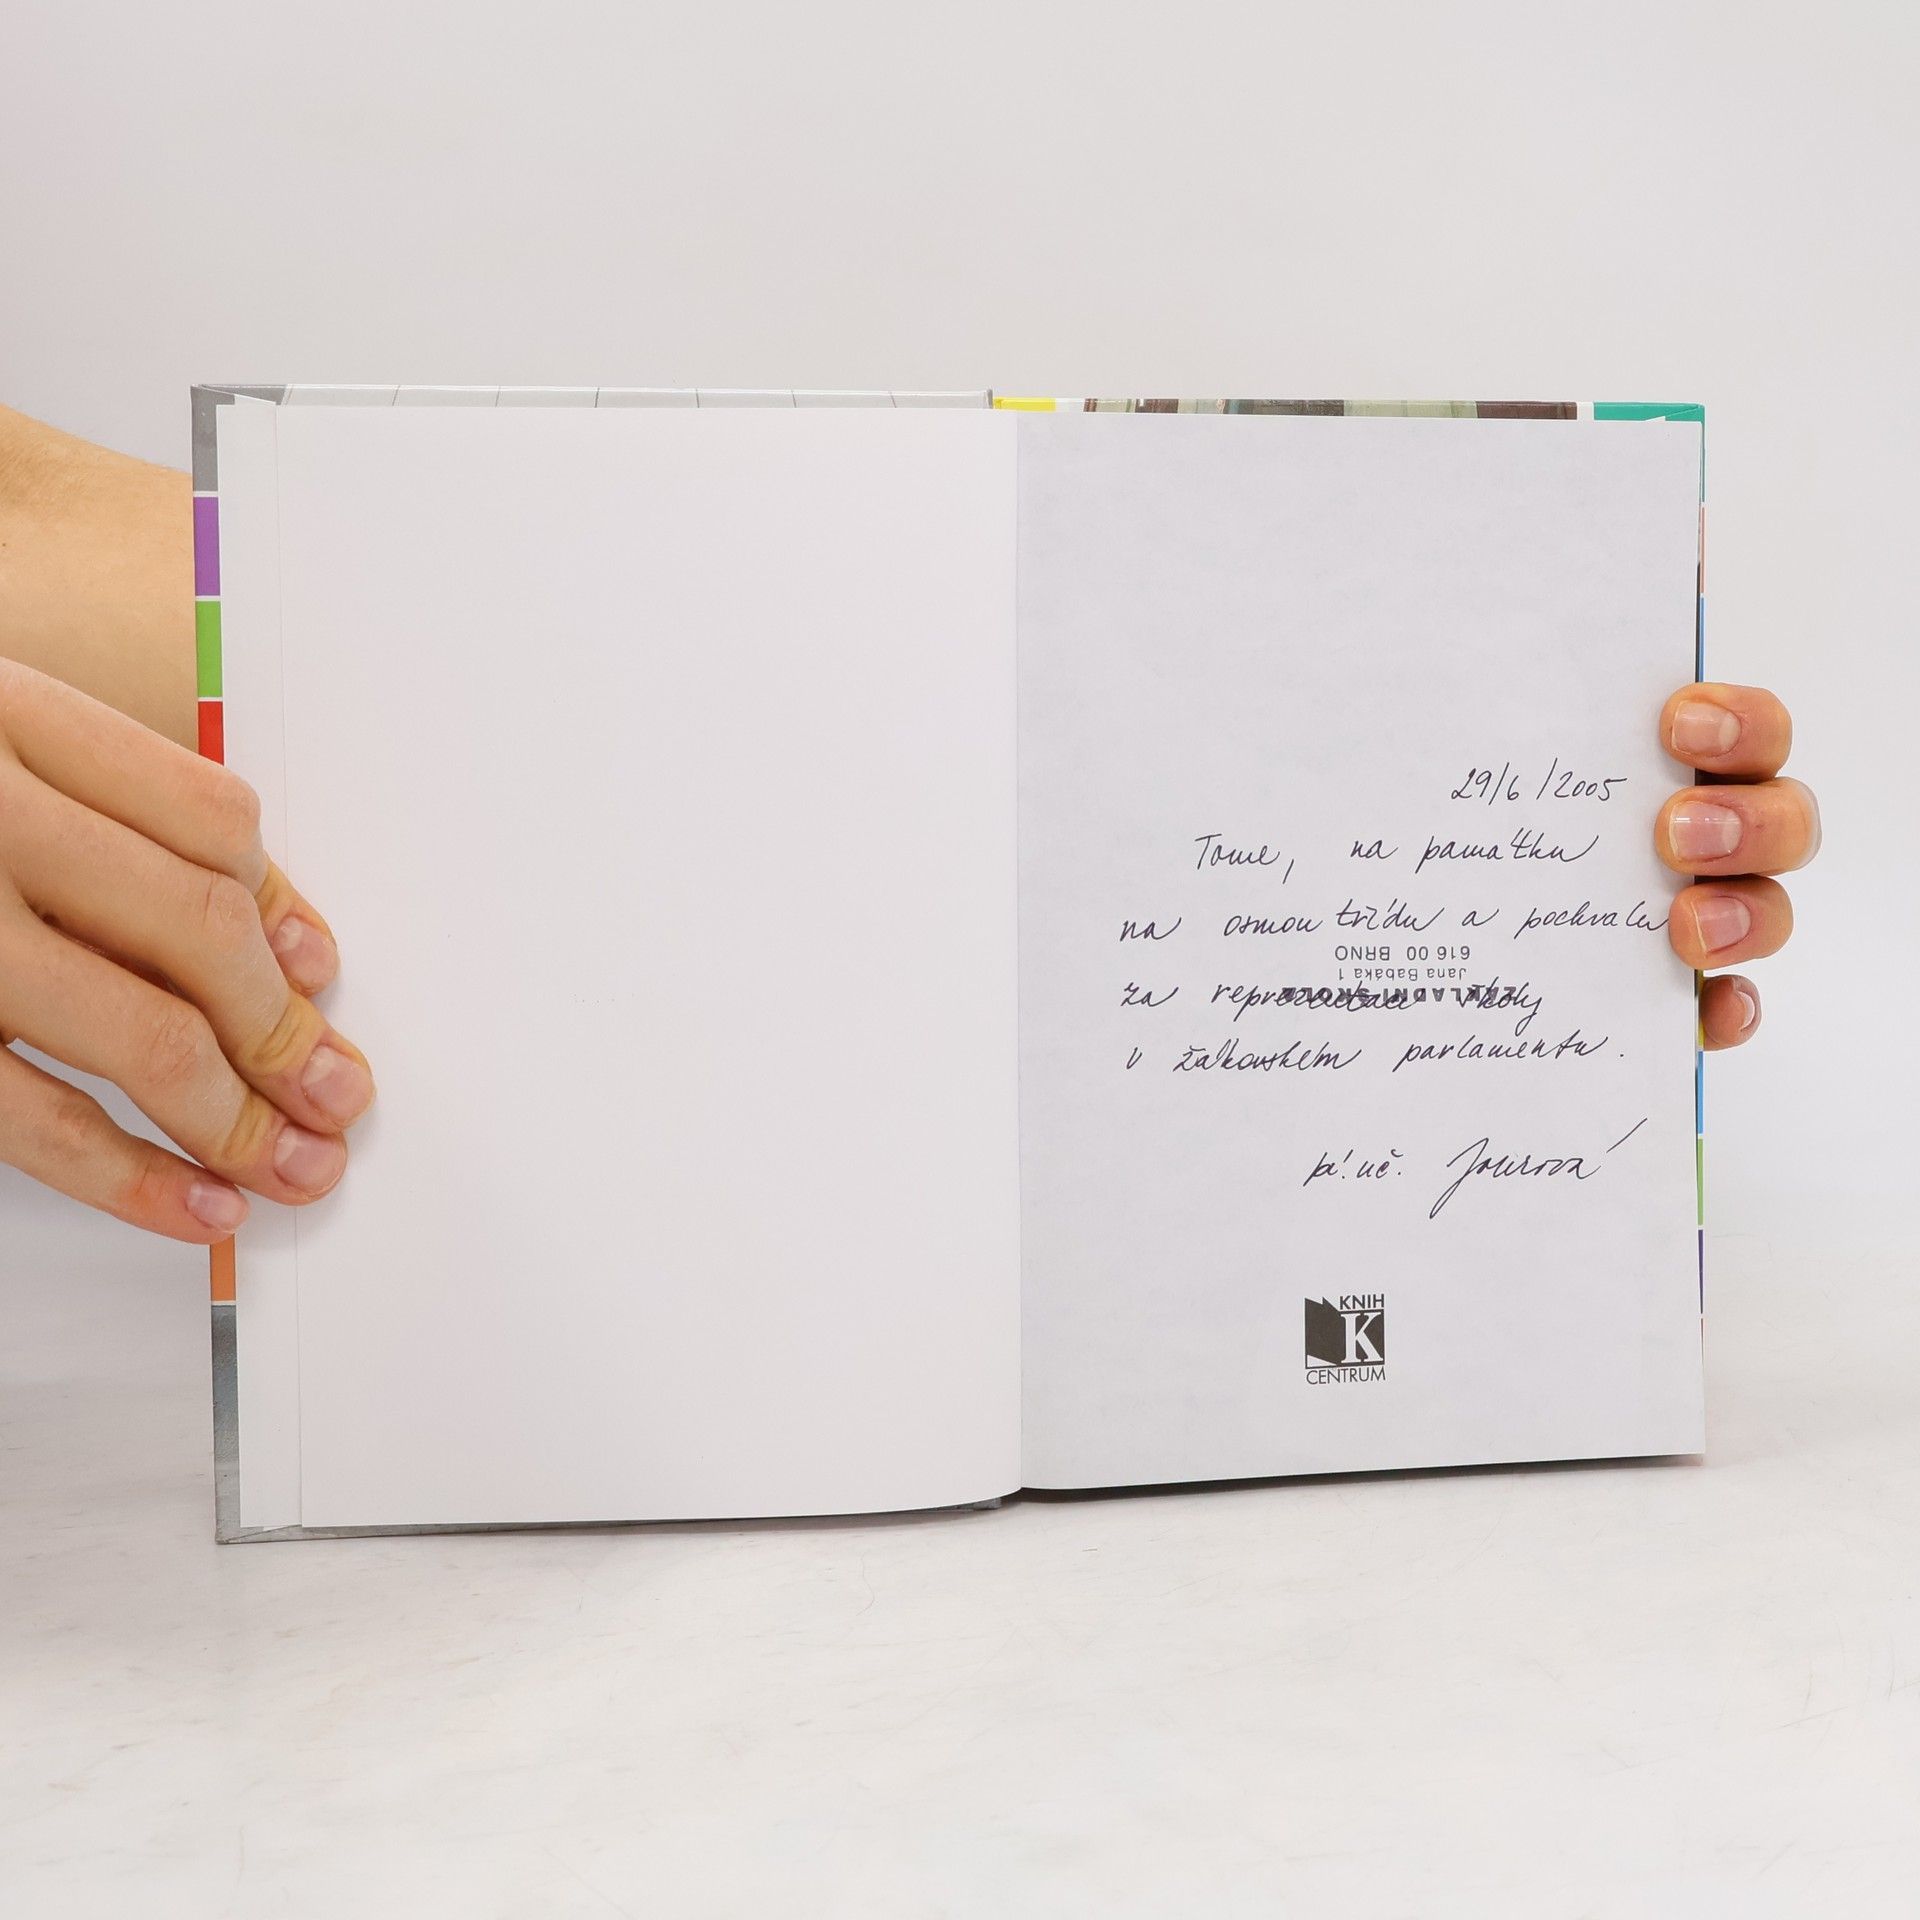 29/6/2005
Tome, na památku
na osmou třídu a pochvalu
616 00 BRNO
Jana Babáka 1
ZÁKLADNÍ ŠKOLA
za reprezentaci školy
v žákovském parlamentu.
pí. uč. Jourová
KNIH
K
CENTRUM